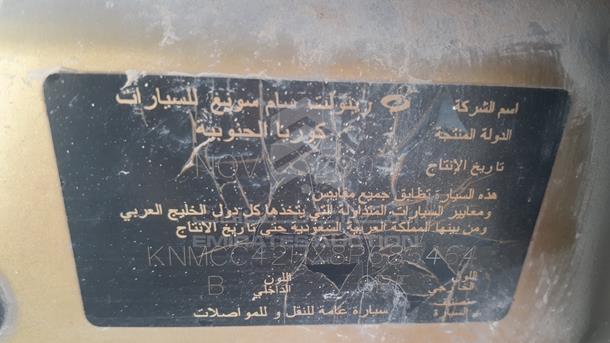 اسم الشركة : رينولت سامسونغ للسيارات
الدولة المنتجة : كوريا الجنوبية
تاريخ الإنتاج : NOV
هذه السيارة تطابق جميع مقاييس
ومعايير السيارات المتداولة التي يتخذها كل دول الخليج العربي
ومن بينها المملكة العربية السعودية حتى تاريخ الإنتاج
EMIRATES AUCTION
KNMCC42
اللون الخارجي : اللون الداخلي : B
السيارة : سيارة عامة للنقل و للمواصلات